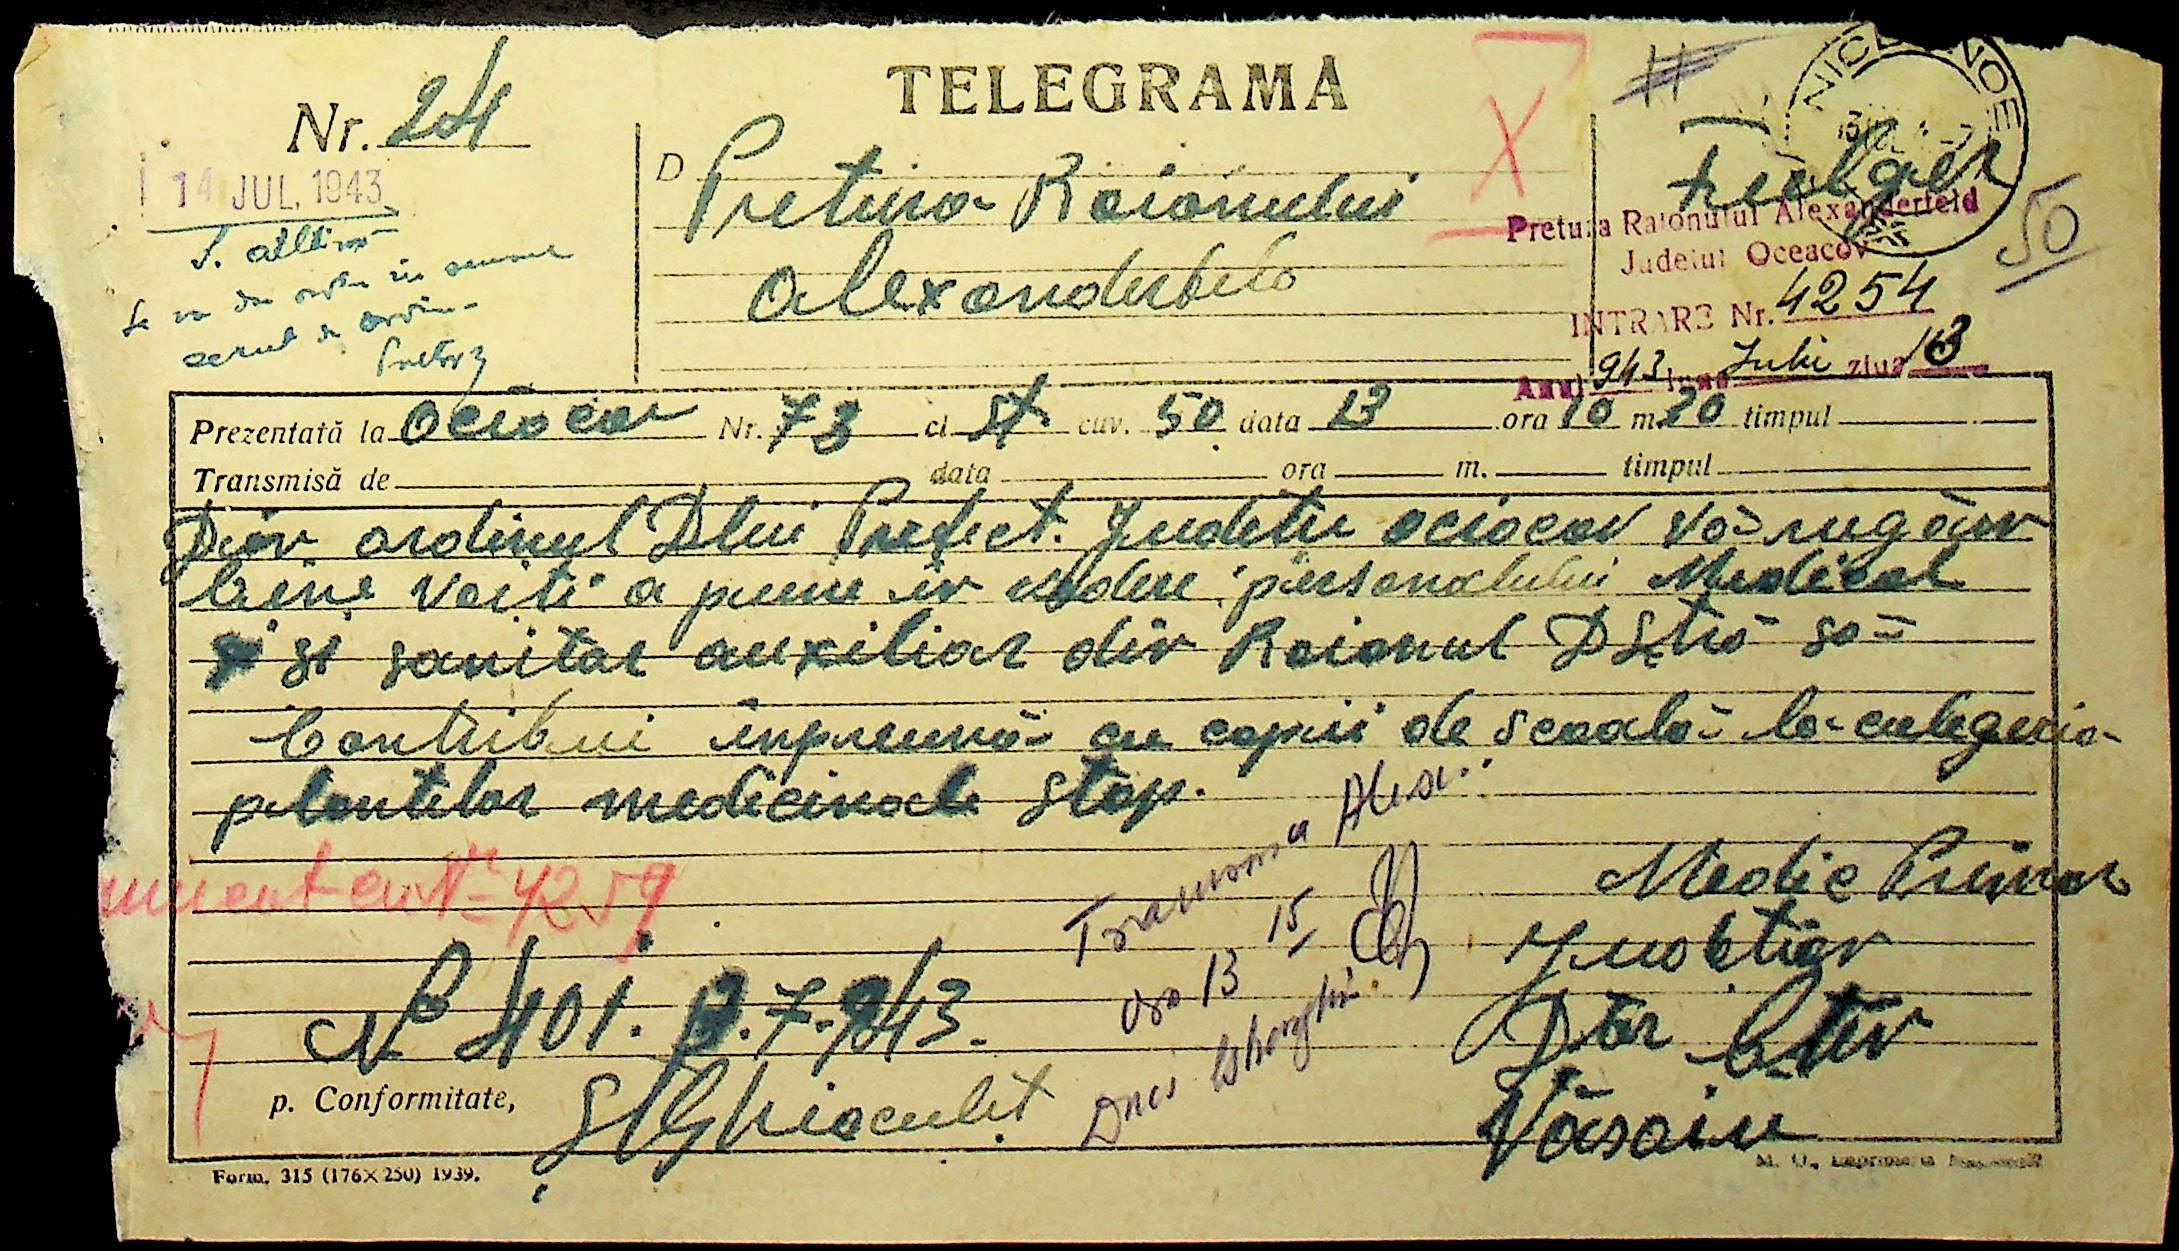 TELEGRAMA
Nr. 24
14 JUL. 1943
Se va da ordin în
D Pretura Raionului
Alexanderfeld
NICOLAEVCA NOE
Fulger
50
Pretura Raionului Alexanderfeld
Judeiul Oceacov
INTRARE Nr. 4254
Anul 943 luna Iulie ziua 13
Prezentată la Ociocov Nr. 73 cl St cuv. 50 data 13 ora 10 m. 20 timpul
Transmisă de data ora m. timpul
Din ordinul Dlui Prefect. Judetu Ociocov Vă rugăm
bine voiti a pune in vedere personalului Medical
și sanitar auxiliar din Raionul DStră să
Contribui inpreună cu copii de scoală la culegeria
plantelor medicinale Stop.
cu No 4259
Transmisă Alex..
ora 13 15
Dnei Gheorghiu
Medic Primar
Judetian
No 401. 13.7.943.
Văsoiu
p. Conformitate,
Form. 315 (176×250) 1939.